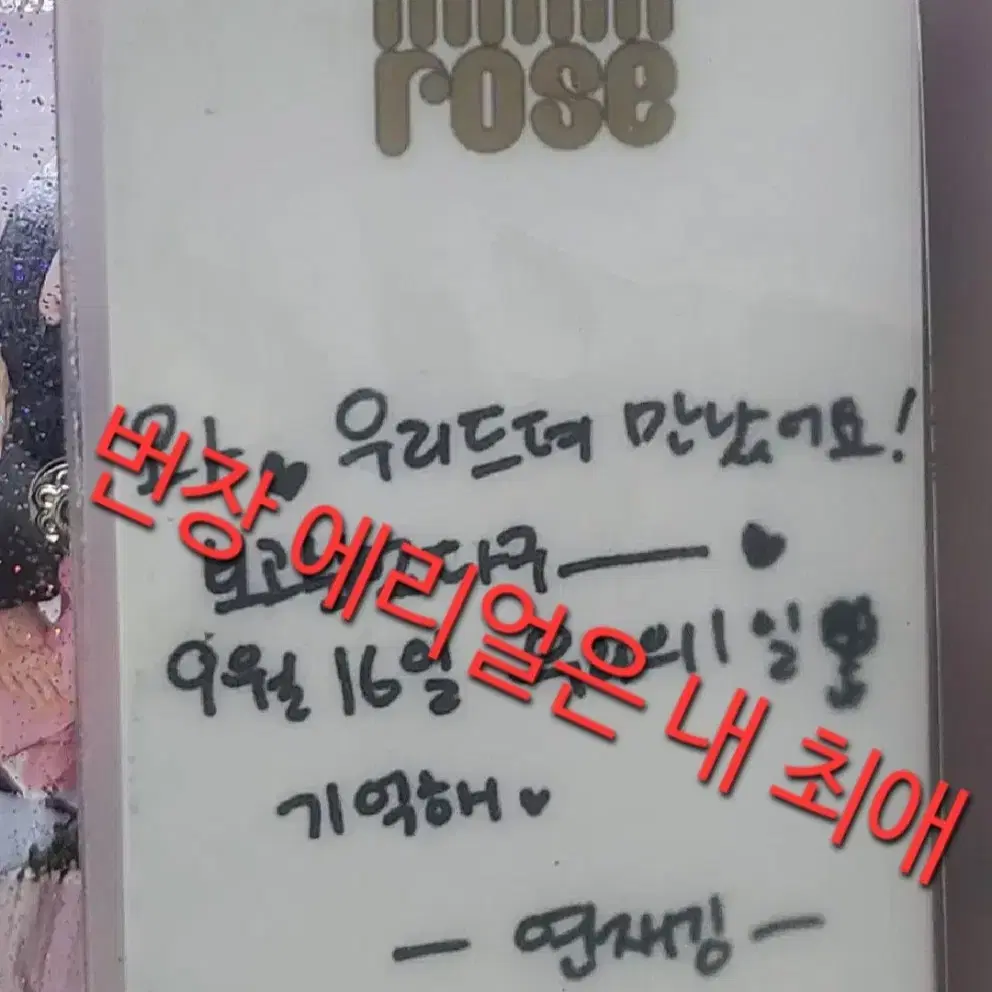 rose
우리드뎌 만났어요!
9월 16일 1일
기억해♥
— 연재킹 —
번장 에리얼은 내 최애